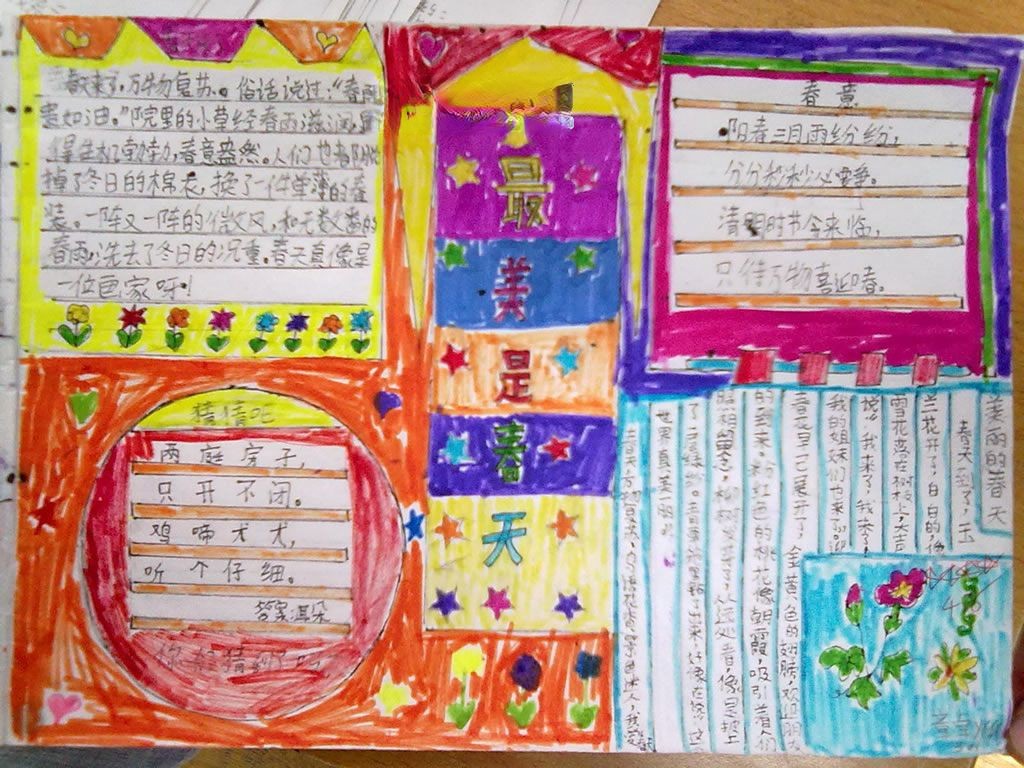 春天来了，万物复苏。俗话说过："春雨
贵如油。"院里的小草经春雨滋润，显
得生机勃勃，春意盎然。人们也都脱
掉了冬日的棉衣，换了一件单薄的春
装。一阵又一阵的微风，和无数次的
春雨，洗去了冬日的沉重。春天真像是
一位画家呀！
猜猜吧
两庭房子，
只开不闭。
鸡啼犬犬，
听个仔细。
答案：耳朵
你们猜到了吗
最
美
是
春
天
春意
阳春三月雨纷纷，
分分秒秒必要争。
清明时节今来临，
只待万物喜迎春。
美丽的春天
春天到了，玉
兰花开了，白白的，像
雪花落在树枝上，大声
说："我来了，我来了，
我的姐妹们也来了。"迎
春花早已展开了，金黄色的翅膀，欢迎朋友
的到来。粉红色的桃花像朝霞，吸引着人们
照相留念，柳树发芽了，从远处看，像是披上
世界真美
春天，万物复苏，鸟语花香，景色迷人，我爱